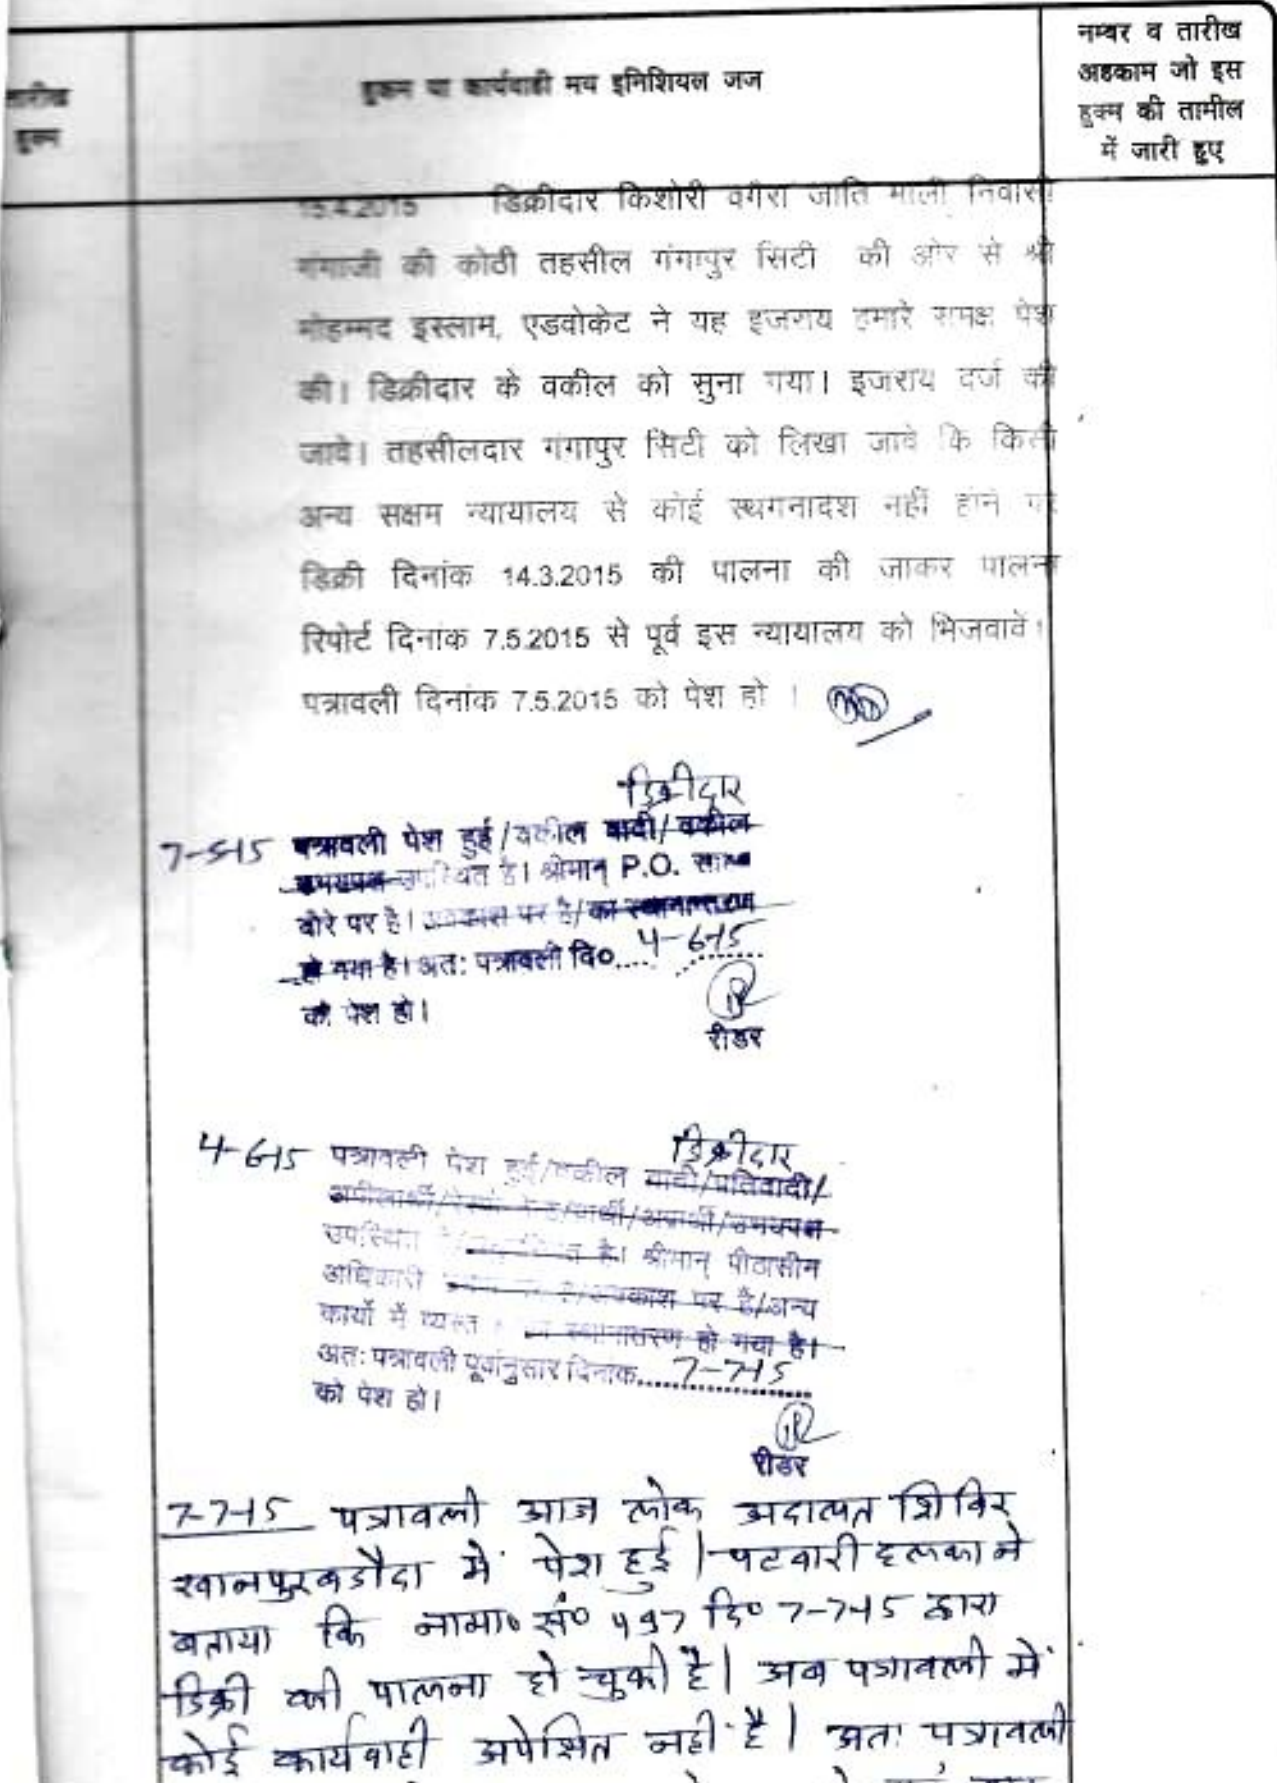 तारीख
हुक्म
हुकम या कार्यवाही मय इनिशियल जज
नम्बर व तारीख
अहकाम जो इस
हुक्म की तामील
में जारी हुए
15.4.2015 डिक्रीदार किशोरी वगैरा जाति माली निवासी
गंगाजी की कोठी तहसील गंगापुर सिटी की ओर से श्री
मोहम्मद इस्लाम, एडवोकेट ने यह इजराय हमारे समक्ष पेश
की। डिक्रीदार के वकील को सुना गया। इजराय दर्ज की
जावे। तहसीलदार गंगापुर सिटी को लिखा जावे कि किसी
अन्य सक्षम न्यायालय से कोई स्थगनादेश नहीं होने पर
डिक्री दिनांक 14.3.2015 की पालना की जाकर पालना
रिपोर्ट दिनांक 7.5.2015 से पूर्व इस न्यायालय को भिजवावें।
पत्रावली दिनांक 7.5.2015 को पेश हो ।
डिक्रीदार
7-5-15 पत्रावली पेश हुई/वकील वादी/वकील
उभयपक्ष उपस्थित है। श्रीमान् P.O. साहब
दौरे पर है। अवकाश पर है/का स्थानान्तरण
हो गया है। अत: पत्रावली दि०....4-6-15
को पेश हो।
रीडर
डिक्रीदार
4-6-15 पत्रावली पेश हुई/वकील वादी/प्रतिवादी/
अपीलार्थी/रेस्पो /प्रार्थी/अप्रार्थी/उभयपक्ष
उपस्थित है। श्रीमान् पीठासीन
अधिकारी /अवकाश पर है/अन्य
कार्यो में व्यस्त का स्थानांतरण हो गया है।
अत: पत्रावली पूर्वानुसार दिनांक....7-7-15
को पेश हो।
रीडर
7-7-15 पत्रावली आज लोक अदालत शिविर
खानपुरबडौदा में पेश हुई। पटवारी हल्का ने
बताया कि नामा० सं० 497 दि० 7-7-15 द्वारा
डिक्री की पालना हो चुकी है। अब पत्रावली में
कोई कार्यवाही अपेक्षित नही है। अतः पत्रावली